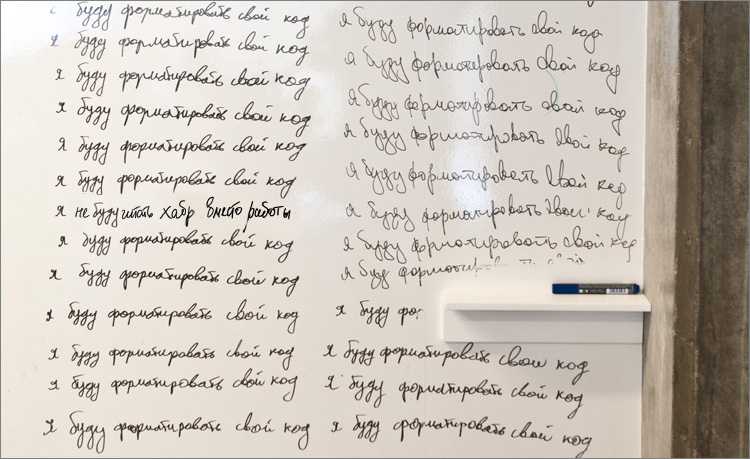 я буду форматировать свой код
я буду форматировать свой код
я буду форматировать свой код
я буду форматировать свой код
я буду форматировать свой код
я буду форматировать свой код
я не буду читать хабр вместо работы
я буду форматировать свой код
я буду форматировать свой код
я буду форматировать свой код
я буду форматировать свой код
я буду форматировать свой код
я буду форматировать свой код
я буду форматировать свой код
я буду форматировать свой код
я буду форматировать свой код
я буду форматировать свой код
я буду форматировать свой код
я буду форматировать свой код
я буду форматировать свой код
я буд
я буду фо
я буду форматировать свой код
я буду форматировать свой код
я буду форматировать свой код